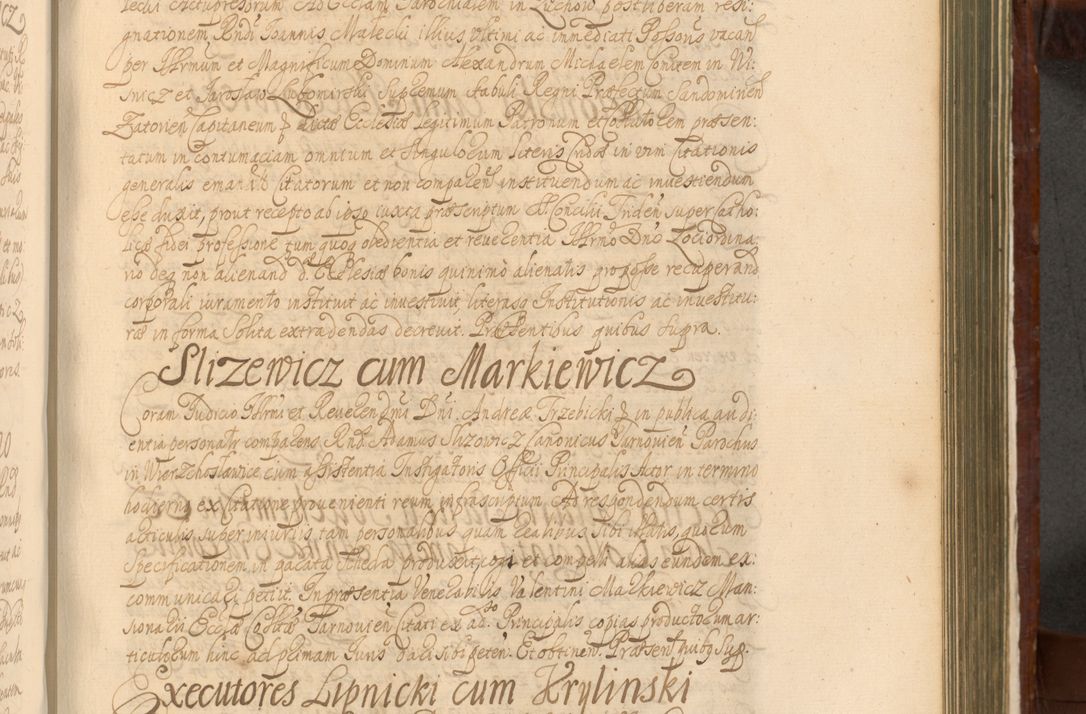 lecti Actupresorum Ad Eccliam Parochialem in Zuchow post liberam resi:
gnationem Rndi Joannis Małecki illius ultimi ac immediati Possoris vacan
per Illrmum et Magnificum Dominum Alexandrum Michaelem Comitem in Wi:
snicz et Jarosław Lubomirski Supremum Stabuli Regni Præfectum Sandomirien
Zatorien Capitaneum & dictæ Ecclesiæ Legitimum Patronum et Collatorem præsen:
tatum in contumaciam omnium et singulorum literis Cridæ in vim Citationis
generalis emanat Citatorum et non comparen instituendum ac investiendum
esse duxit, prout recepto ab ipso iuxta præscriptum S. Concilii Triden super Catho:
licæ fidei professione tum quoq obedientia et reverentia Illrmo Dno Loci ordina:
rio deq non alienand d. Ecclesiæ bonis quinimo alienatis pro posse recuperand
corporali iuramento instituit ac investivit, literasq Institutionis ac investitu:
ræ in forma Solita extradendas decrevit. Præsentibus quibus supra.
Slizewicz cum Markiewicz
Coram Iudicio Illrmi et Reverendmi Dni Andreæ Trzebicki & in publica audi:
entia personalr comparens Rnd Adamus Slizowicz Canonicus Tarnovien Parochus
in Wierzchosławice cum assistentia Instigatoris Officii Principalis Actor in termino
hodierno ex Citatione provenienti reum infrascriptum Ad respondendum certis
articulis super iniuriis tam personalibus quam realibus sibi illatis, quorum
Specificationem in parata Scheda produxit, copi et compelli ac ad eundem ex:
communicari petiit. In præsentia Venerabilis Valentini Markiewicz Man:
sionarii Eccłæ Collttæ Tarnovien Citati ex adso Principalis copias productorum ar:
ticulorum hinc ad primam Iuris dari sibi peten. Et obtinen. Præsent quibq sup.
Executores Lipnicki cum Krylinski